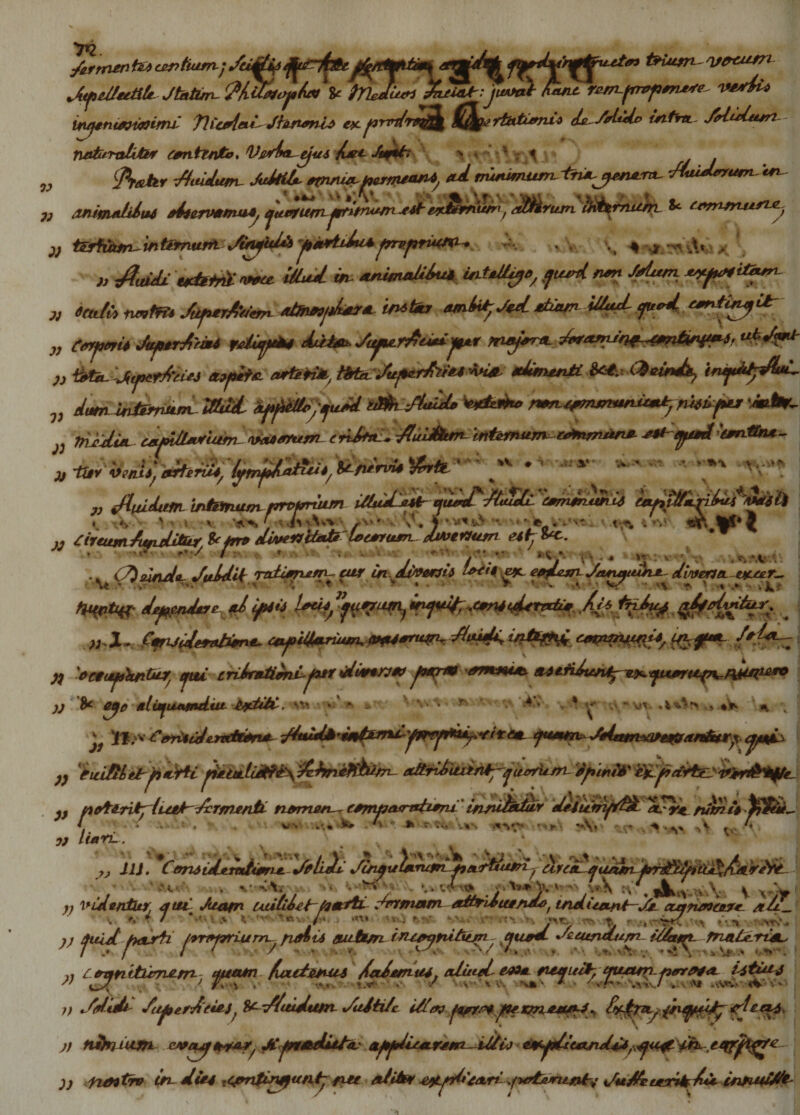 72.
fermentes centium; Scilicet
trium vocum
Supellectile statim Philosophos & Medicos faciat: juvat hanc rem proponere verbis
ingeniosissimi Nicolai Stenonis ex prodromo dissertationis de Solido intra Solidum
naturaliter contento. Verba ejus sunt:
„ Præter fluidum subtile omnia permeans, ad minimum tria genera fluidorum in
„ animalibus observamus, quorum primum est externum, alterum internum & commune,
„ tertium internum singulis partibus proprium.
„ Fluidi externi voce illud in animalibus intelligo, quod non solum expositam
„ oculis nostris superficiem atmosphæra instar ambit, sed etiam illud quod contingit
„ corporis superficies reliquas dictæ superficiei per majora foramina continuas, ut sunt
„ tota superficies asperæ arteriæ, tota superficies viæ alimenti &c. Deinde, inquit, flui-
„ dum internum illud appello, quod cum fluido externo non communicat, nisi per inter-
„ media capillarium vasorum cribra. Fluidum internum commune est quod contine-
„ tur venis, arteriis, lymphaticis, & nervis forte
„ Fluidum internum proprium illud est quod fluidi communis capillaribus vasis
„ circumfunditur, & pro diversitate locorum diversum est, &c.
Deinde subdit rationem, cur in diversis locis ex eodem sanguine diversa excer-
nuntur dependere ab ipsis locis, quorum, inquit, consideratio his tribus absolvitur.
„ I. Consideratione capillarium vasorum, fluidi interni communis, in qua sola
„ occupantur, qui cribrationi per diversos poros omnia ascribunt, ex quorum numero
„ & ego aliquamdiu extiti.
„ II. Consideratione fluidi interni proprii, circa quam solam versantur, qui
„ cuilibet parti peculiare fermentum attribuunt, quorum opinio ex parte vera esse
„ poterit, licet fermenti nomen comparationi innitatur desumptæ a re nimis pecu-
„ liari.
„ III. Consideratione solidi singularum partium, circa quam præcipue hærere
„ videntur, qui suam cuilibet parti formam attribuendo, indicant se agnoscere ali-
„ quid parti proprium, nobis autem incognitum, quod secundum illam materiæ
„ cognitionem, quam hactenus habemus, aliud esse nequit, quam porosa istius
„ solidi superficies, & fluidum subtile illos poros permeans. Extra, inquit, oleas
„ nimium evagarer, si prædicta applicarem illis explicandis, quæ in corpore
„ nostro in dies contingunt, nec aliter explicari poterunt; suffecerit hic innuisse